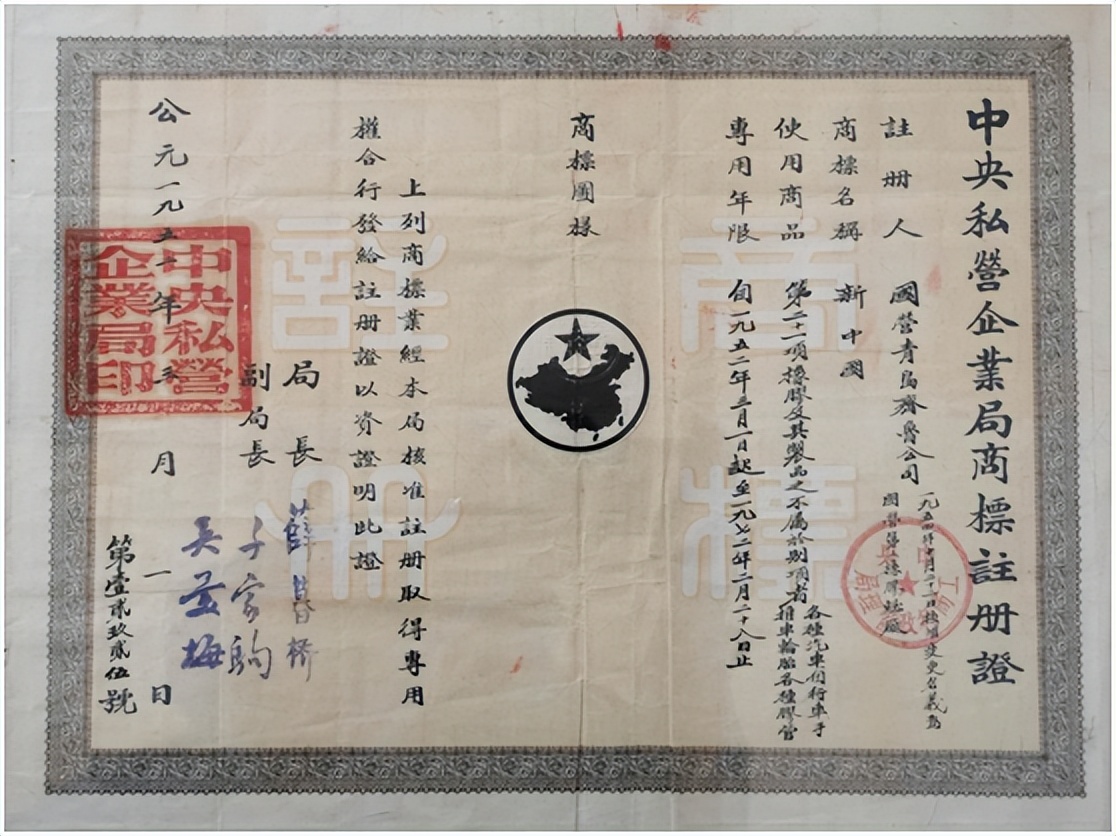 中央私營企業局商標註册證
註册人 國營青島齊魯公司
一九五四年十月二十一日核准變更名義爲
國營
橡膠
廠
中央工商行政管理局
商標名稱 新中國
使用商品 第二十一項橡膠及其製品之不屬於別項者
各種汽車自行車手
推車輪胎各種膠管
專用年限 自一九五二年三月一日起至一九七二年二月二十八日止
商標圖樣
上列商標業經本局核准註册取得專用
權合行發給註册證以資證明此證
局長 薛暮橋
副局長 千家駒
吳羹梅
公元一九五 年三月一日
中央私營企業局印
第壹貳玖貳伍號
商標
註册